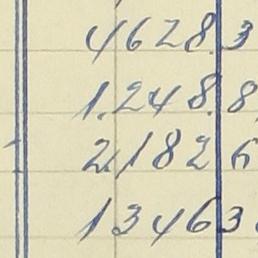 4628.3
1.248.8
2,182 6
13463